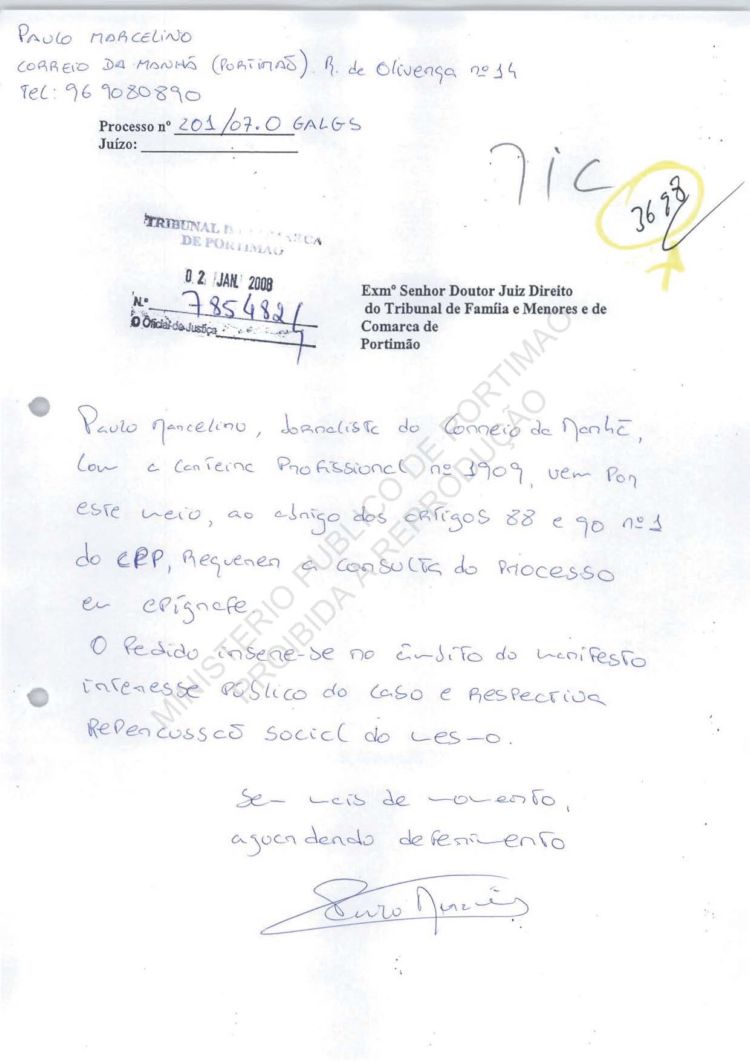 PAULO MARCELINO
CORREIO DA MANHÃ (PORTIMÃO). R. de Olivença nº 14
Tel: 96 9080890
Processo nº 201/07.0 GALGS
Juízo:
JIC
3698
TRIBUNAL DA COMARCA
DE PORTIMAO
02 JAN. 2008
N.º 785482
O Oficial de Justiça
Exmº Senhor Doutor Juiz Direito
do Tribunal de Famíia e Menores e de
Comarca de
Portimão
Paulo Marcelino, Jornalista do Correio da Manhã,
com a carteira Profissional nº 1909, vem por
este meio, ao abrigo dos artigos 88 e 90 nº 1
do CPP, Requerer a consulta do processo
em epígrafe.
O Pedido insere-se no âmbito do manifesto
interesse público do caso e respectiva
repercussão social do mesmo.
Sem mais de momento,
aguardando deferimento
Paulo Marcelino
MINISTERIO PUBLICO DE PORTIMAO
PROIBIDA A REPRODUÇÃO